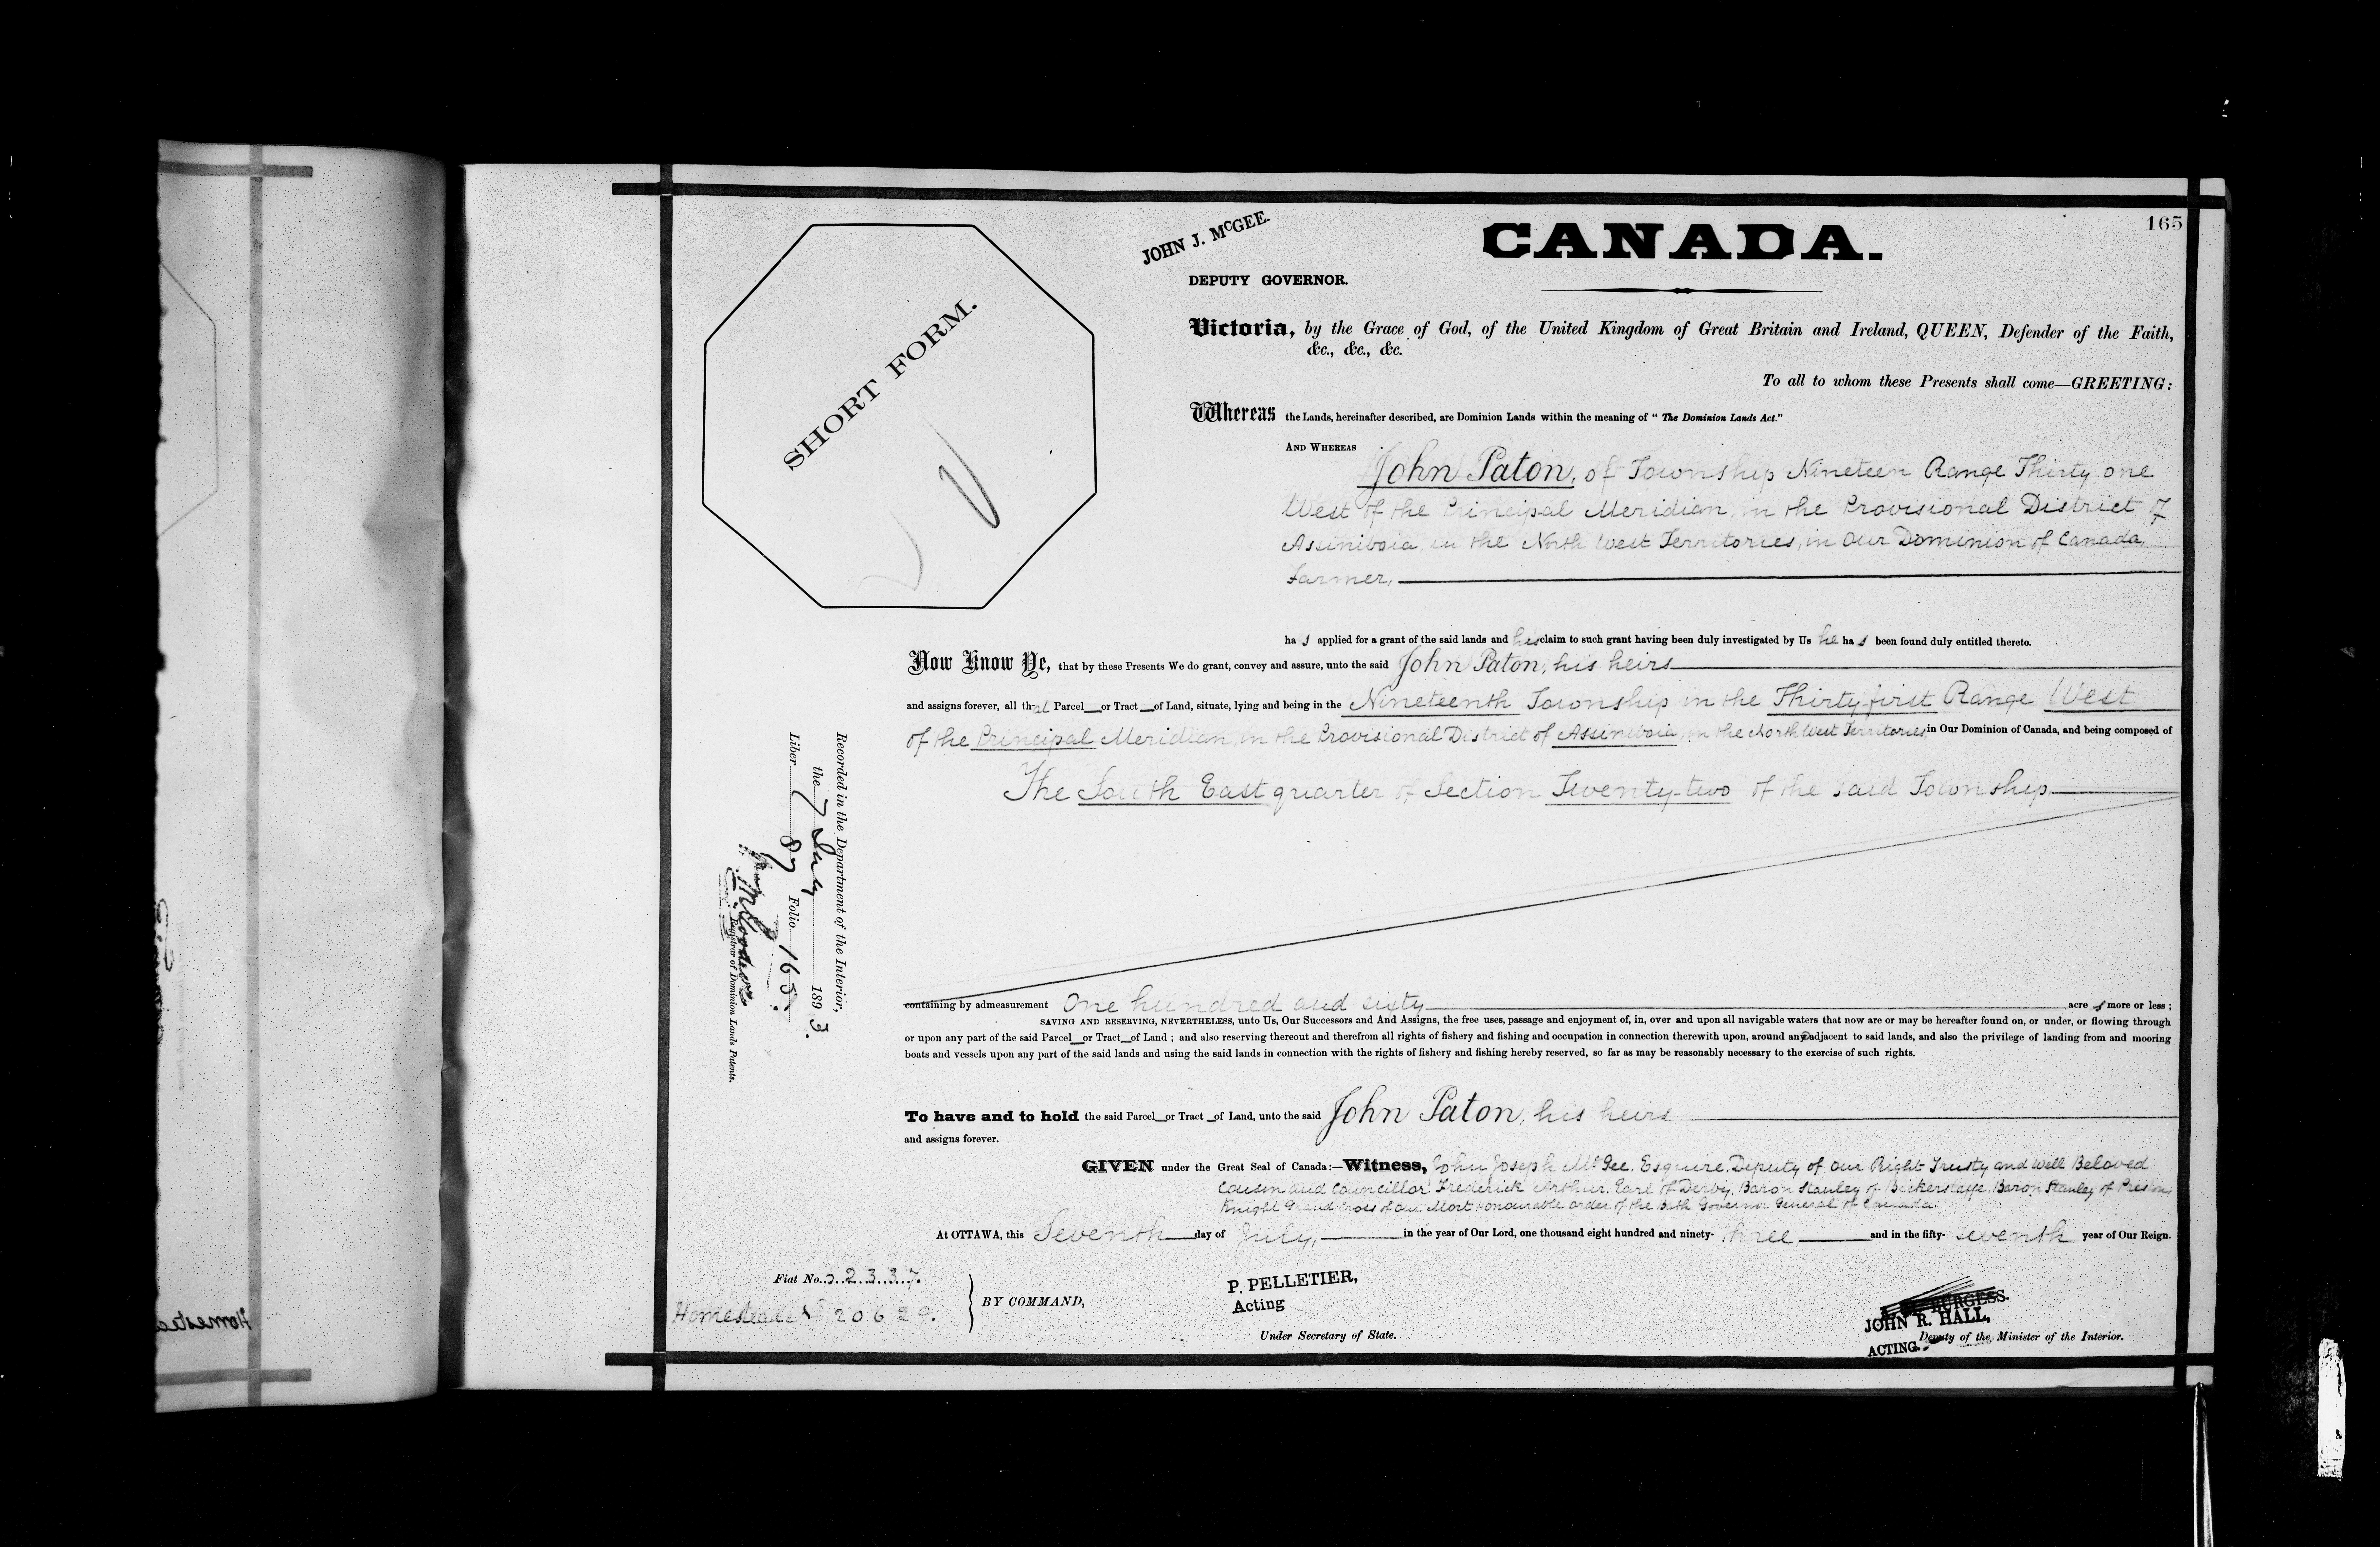 165
JOHN J. McGEE.
CANADA.
DEPUTY GOVERNOR.
SHORT FORM.
Victoria, by the Grace of God, of the United Kingdom of Great Britain and Ireland, QUEEN, Defender of the Faith,
&c., &c., &c.
To all to whom these Presents shall come—GREETING:
Whereas the Lands, hereinafter described, are Dominion Lands within the meaning of " The Dominion Lands Act."
AND WHEREAS
John Paton, of Township Nineteen Range Thirty one
West of the Principal Meridian, in the Provisional District of
Assiniboia, in the North West Territories, in Our Dominion of Canada,
Farmer,
ha s applied for a grant of the said lands and his claim to such grant having been duly investigated by Us he ha s been found duly entitled thereto.
Now Know Ye, that by these Presents We do grant, convey and assure, unto the said John Paton, his heirs
and assigns forever, all that Parcel or Tract of Land, situate, lying and being in the Nineteenth Township in the Thirty-first Range West
of the Principal Meridian, in the Provisional District of Assiniboia, in the North West Territories, in Our Dominion of Canada, and being composed of
The South East quarter of Section Twenty-two of the said Township
containing by admeasurement One hundred and sixty acre s more or less ;
SAVING AND RESERVING, NEVERTHELESS, unto Us, Our Successors and And Assigns, the free uses, passage and enjoyment of, in, over and upon all navigable waters that now are or may be hereafter found on, or under, or flowing through
or upon any part of the said Parcel or Tract of Land ; and also reserving thereout and therefrom all rights of fishery and fishing and occupation in connection therewith upon, around any adjacent to said lands, and also the privilege of landing from and mooring
boats and vessels upon any part of the said lands and using the said lands in connection with the rights of fishery and fishing hereby reserved, so far as may be reasonably necessary to the exercise of such rights.
To have and to hold the said Parcel or Tract of Land, unto the said John Paton, his heirs
and assigns forever.
GIVEN under the Great Seal of Canada:—Witness, John Joseph McGee, Esquire, Deputy of Our Right Trusty and Well Beloved
Cousin and Councillor Frederick Arthur, Earl of Derby, Baron Stanley of Bickerstaffe, Baron Stanley of Preston,
Knight Grand Cross of Our Most Honourable Order of the Bath Governor General of Canada.
At OTTAWA, this Seventh day of July, in the year of Our Lord, one thousand eight hundred and ninety- three and in the fifty- seventh year of Our Reign.
Fiat No. 2337.
Homestead No 20629.
BY COMMAND,
P. PELLETIER,
Acting
Under Secretary of State.
BURGESS.
JOHN R. HALL,
ACTING Deputy of the Minister of the Interior.
Recorded in the Department of the Interior,
the 7 July 1893.
Liber 87 Folio 165.
Registrar of Dominion Lands Patents.
Homestea